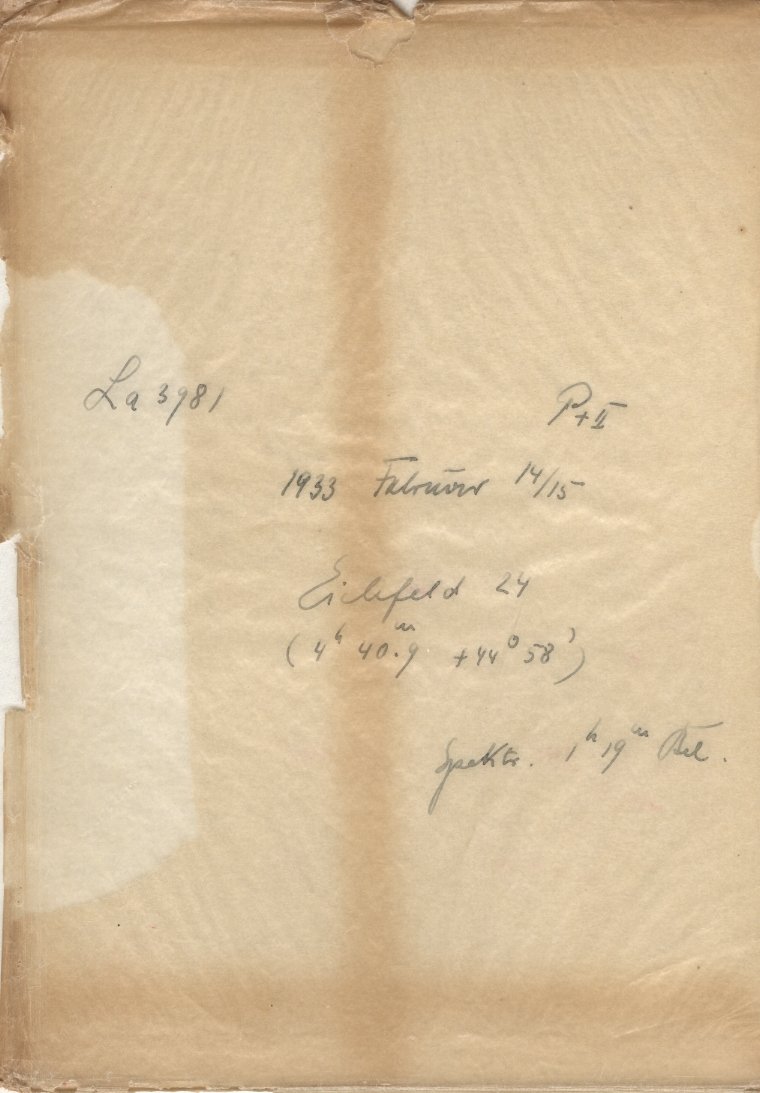 La 3981 P+II
1933 Februar 14/15
Eichfeld 24
(4ʰ 40.ᵐ9 +44° 58')
Spektr. 1ʰ 19ᵐ Bel.